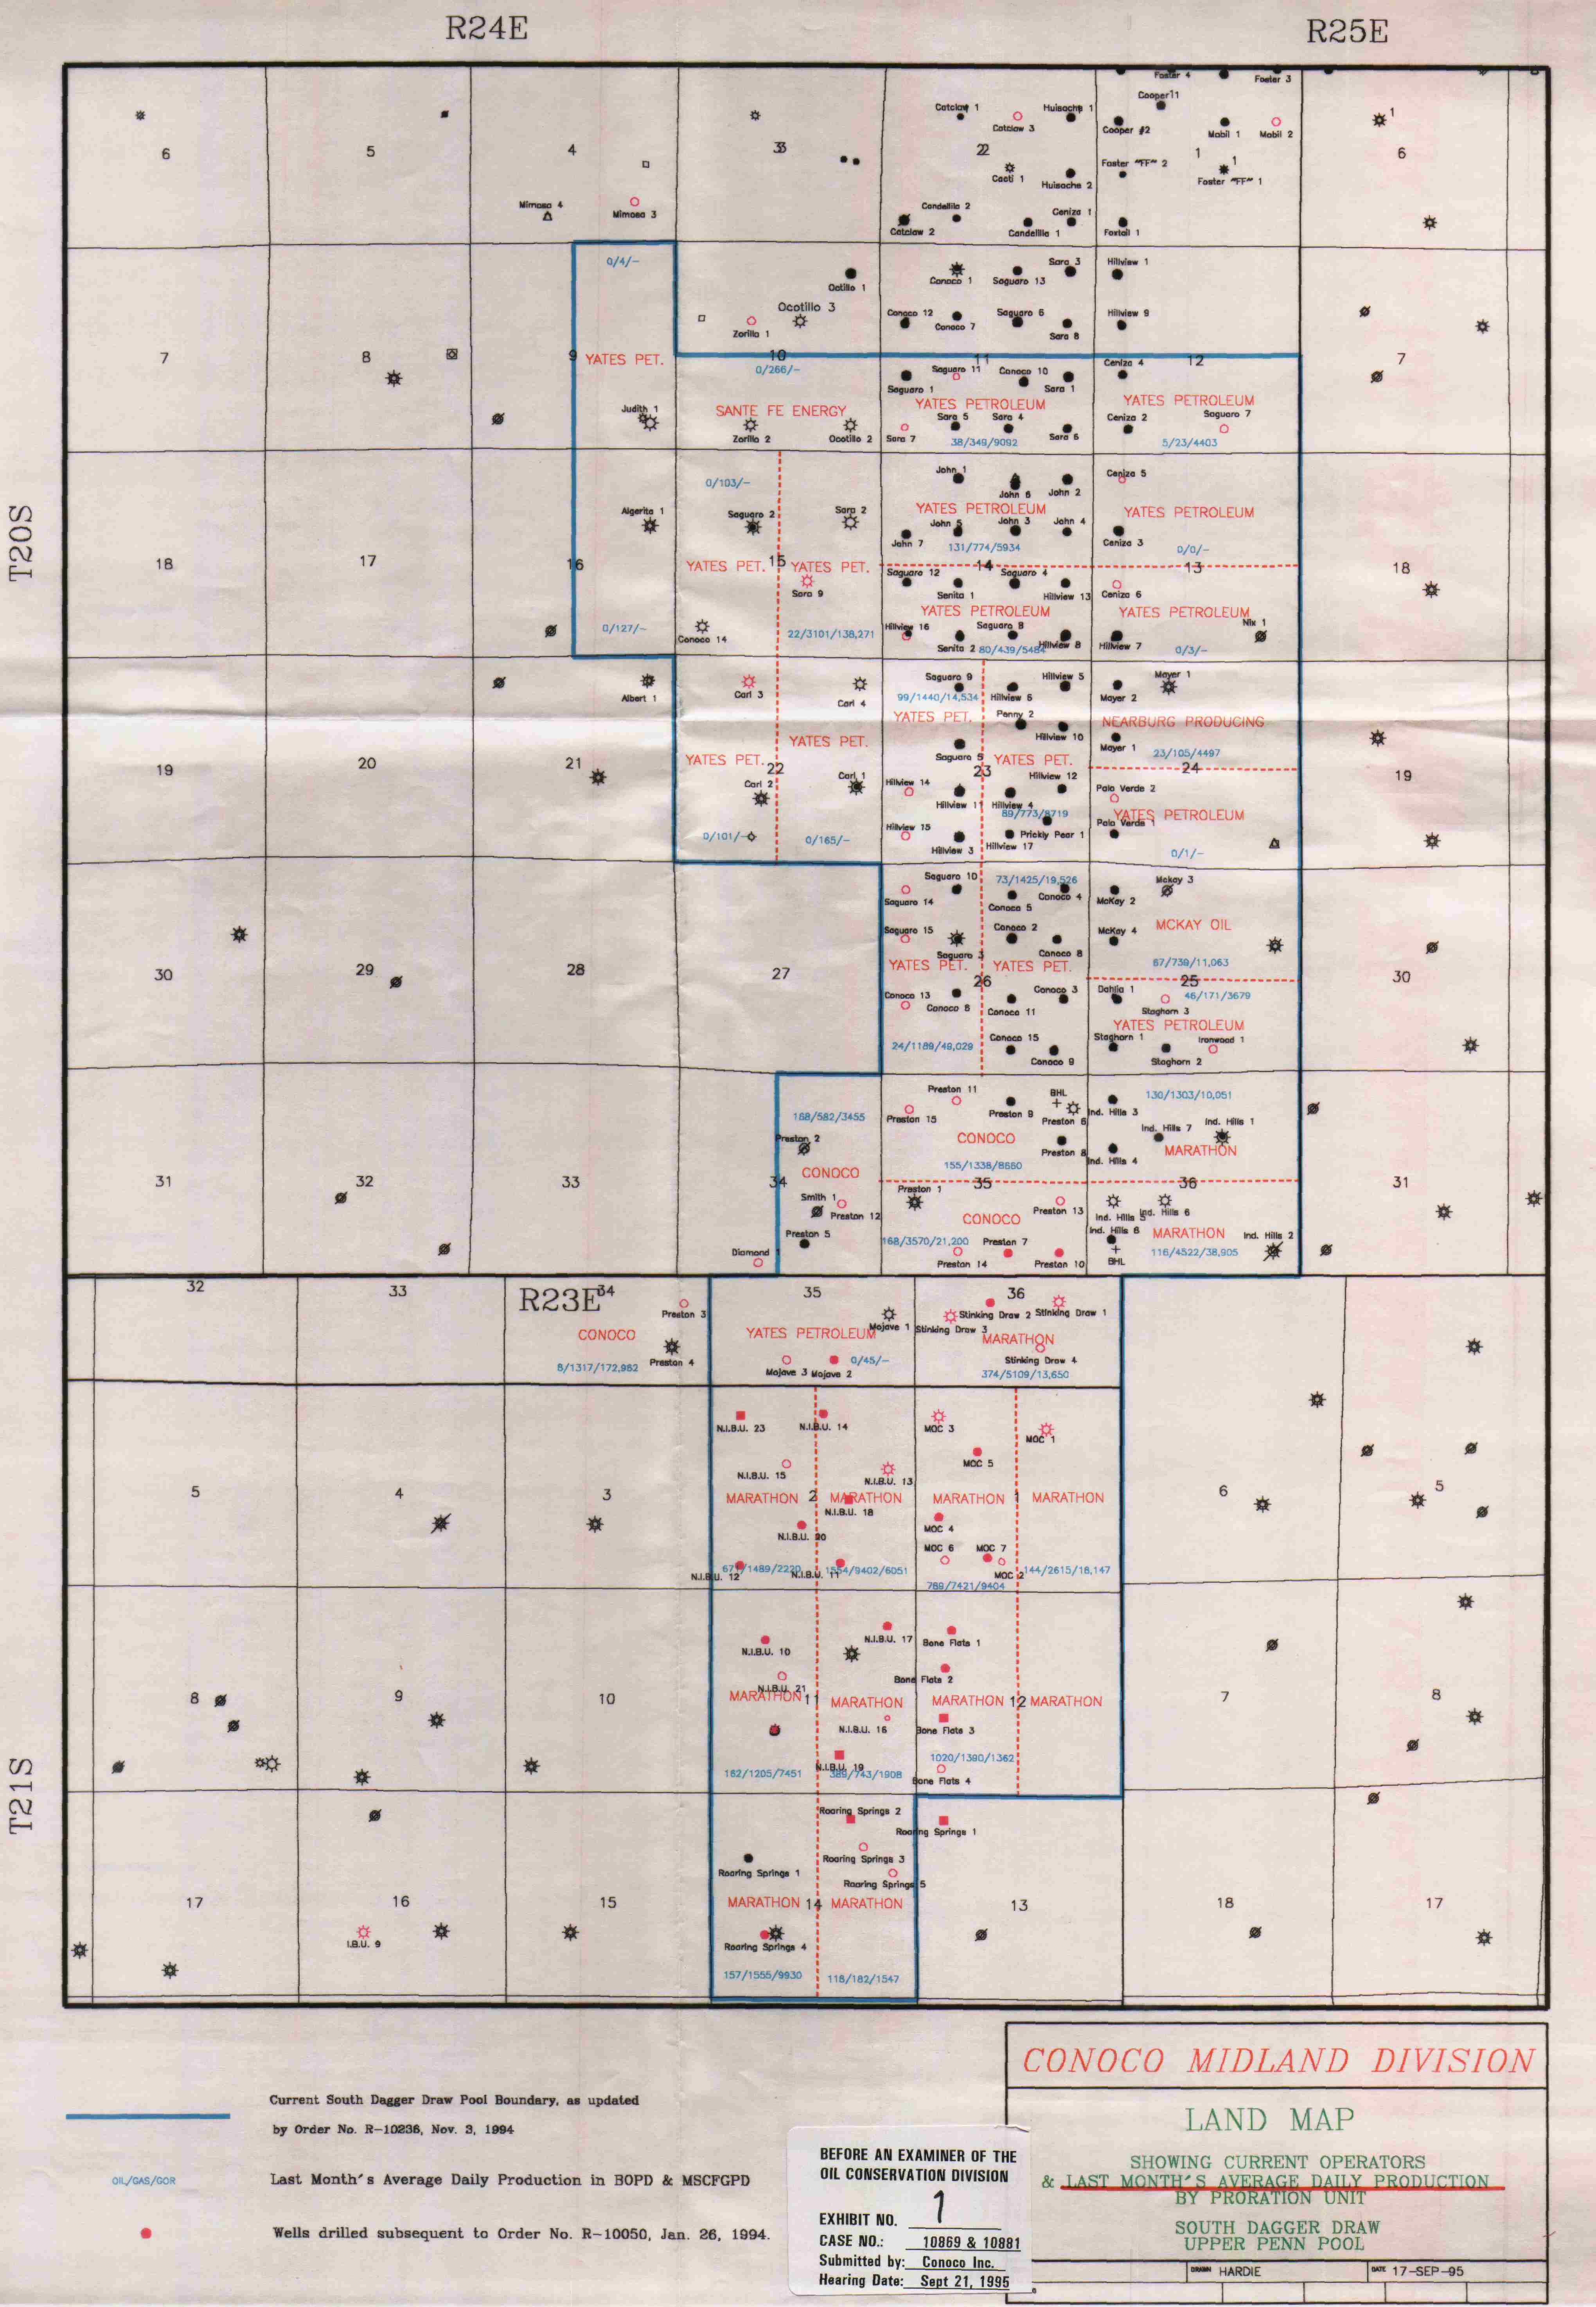 R24E
R25E
Foster 4
Foster 3
Cooper 11
Catclaw 1
Huisache 1
Catclaw 3
Cooper #2
Mobil 1
Mobil 2
1
6
5
4
2
1
6
Cacti 1
Huisache 2
Foster "FF" 2
1
Foster "FF" 1
Mimosa 4
Mimosa 3
Candelilla 2
Ceniza 1
Catclaw 2
Candelilla 1
Foxtail 1
0/4/-
Sara 3
Hillview 1
Conoco 1
Saguaro 13
Ocotillo 3
Zorillo 1
Conoco 12
Conoco 7
Saguaro 6
Sara 8
Hillview 9
7
8
9
YATES PET.
10
11
12
7
0/266/-
Saguaro 11
Conoco 10
Ceniza 4
Saguaro 1
Sara 1
SANTE FE ENERGY
YATES PETROLEUM
YATES PETROLEUM
Judith 1
Zorillo 2
Ocotillo 2
Sara 7
Sara 5
Sara 4
Sara 6
Ceniza 2
Saguaro 7
38/349/9092
5/23/4403
T20S
0/103/-
John 1
John 6
John 2
Ceniza 5
Algerita 1
Saguaro 2
Sara 2
YATES PETROLEUM
YATES PETROLEUM
John 7
John 5
John 3
John 4
Ceniza 3
131/774/5934
0/0/-
18
17
16
YATES PET.
15
YATES PET.
14
13
18
Sara 9
Saguaro 12
Senita 1
Saguaro 4
Hillview 13
Ceniza 6
YATES PETROLEUM
YATES PETROLEUM
Nix 1
0/127/-
Conoco 14
22/3101/138,271
Hillview 16
Saguaro 8
Senita 2
80/439/5484
Hillview 8
Hillview 7
0/3/-
Albert 1
Carl 3
Carl 4
Saguaro 9
Hillview 5
Mayer 1
99/1440/14,534
Hillview 6
Mayer 2
YATES PET.
Penny 2
NEARBURG PRODUCING
Hillview 10
Mayer 1
23/105/4497
YATES PET.
YATES PET.
Saguaro 5
YATES PET.
19
20
21
22
23
24
19
Carl 2
Carl 1
Hillview 14
Hillview 12
Palo Verde 2
Hillview 11
Hillview 4
89/773/8719
YATES PETROLEUM
Palo Verde 1
0/101/-
0/165/-
Hillview 15
Hillview 3
Hillview 17
Prickly Pear 1
0/1/-
Saguaro 10
73/1425/19,526
Mckay 3
Saguaro 14
Conoco 5
Conoco 4
McKay 2
Saguaro 15
Conoco 2
McKay 4
MCKAY OIL
Saguaro 3
Conoco 8
YATES PET.
YATES PET.
67/739/11,063
30
29
28
27
26
25
30
Conoco 13
Conoco 6
Conoco 11
Conoco 3
Dahlia 1
46/171/3679
Staghorn 3
YATES PETROLEUM
24/1189/49,029
Conoco 15
Conoco 9
Staghorn 1
Staghorn 2
Ironwood 1
168/582/3455
Preston 11
BHL
130/1303/10,051
Preston 15
Preston 9
Preston 6
Ind. Hills 3
Ind. Hills 7
Ind. Hills 1
Preston 2
CONOCO
Preston 8
Ind. Hills 4
MARATHON
CONOCO
155/1338/8680
31
32
33
34
35
36
31
Smith 1
Preston 12
Preston 1
Preston 13
Ind. Hills 5
Ind. Hills 6
Preston 5
CONOCO
Ind. Hills 6
MARATHON
Ind. Hills 2
Diamond
168/3570/21,200
Preston 7
Preston 14
Preston 10
BHL
116/4522/38,905
32
33
R23E
34
35
36
Preston 3
CONOCO
Preston 4
8/1317/172,982
YATES PETROLEUM
Mojave 1
Stinking Draw 3
Stinking Draw 2
Stinking Draw 1
MARATHON
Mojave 3
Mojave 2
0/45/-
Stinking Draw 4
374/5109/13,650
N.I.B.U. 23
N.I.B.U. 14
MOC 3
MOC 1
N.I.B.U. 15
N.I.B.U. 13
MOC 5
5
4
3
MARATHON
2
MARATHON
MARATHON
1
MARATHON
6
5
N.I.B.U. 18
N.I.B.U. 20
MOC 4
MOC 6
MOC 7
N.I.B.U. 12
N.I.B.U. 11
MOC 2
144/2615/18,147
789/7421/9404
N.I.B.U. 10
N.I.B.U. 17
Bone Flats 1
Bone Flats 2
N.I.B.U. 21
8
9
10
MARATHON
11
MARATHON
MARATHON
12
MARATHON
7
8
N.I.B.U. 16
Bone Flats 3
N.I.B.U. 19
1020/1390/1362
162/1205/7451
389/743/1908
Bone Flats 4
T21S
Roaring Springs 2
Roaring Springs 1
Roaring Springs 1
Roaring Springs 3
Roaring Springs 5
17
16
15
MARATHON
14
MARATHON
13
18
17
I.B.U. 9
Roaring Springs 4
157/1555/9930
118/182/1547
Current South Dagger Draw Pool Boundary, as updated
by Order No. R-10236, Nov. 3, 1994
OIL/GAS/GOR
Last Month's Average Daily Production in BOPD & MSCFGPD
Wells drilled subsequent to Order No. R-10050, Jan. 26, 1994.
BEFORE AN EXAMINER OF THE
OIL CONSERVATION DIVISION
EXHIBIT NO. 1
CASE NO.: 10869 & 10881
Submitted by: Conoco Inc.
Hearing Date: Sept 21, 1995
CONOCO MIDLAND DIVISION
LAND MAP
SHOWING CURRENT OPERATORS
& LAST MONTH'S AVERAGE DAILY PRODUCTION
BY PRORATION UNIT
SOUTH DAGGER DRAW
UPPER PENN POOL
DRAWN HARDIE
DATE 17-SEP-95